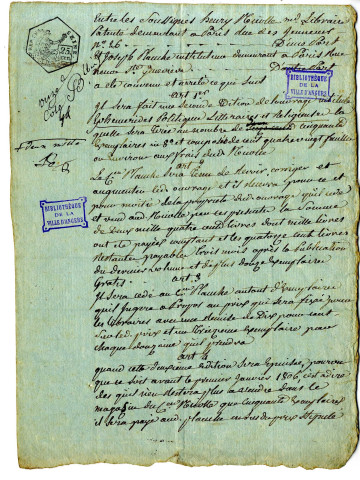 Entre les Soussignés henry Nicolle md Libraire
Patenté demeurant à Paris rue des
No 26 D'une Part
Et Joseph Planche instituteur demeurant à Paris Rue
neuve Ste Genevieve D'autre Part
a été Convenu et arrêté ce qui suit
art 1er
Il Sera fait une Seconde Edition de l'ouvrage intitulé
Ephemerides Politiques Litteraires et Religieuses la
quelle sera tirée au nombre de cinquante
Exemplaires in 8o et composée de cent quatre vingt feuilles
ou environ aux frais dud Nicolle
art 2
Le Cen Planche sera tenu de revoir corriger et
augmenter led ouvrage et il devra pour ce et
pour moitié de la propriété dud ouvrage qu'il cede
et vend aud Nicolle par ces presentes la Somme
de deux mille quatre cent livres dont mille livres
ont été payés comptant et les quatorze cent livres
restante payable trois mois après la publication
du dernier volume et de plus douze exemplaires
Gratis art 3
Il Sera cédé au Cen Planche autant d'Exemplaires
qu'il jugera à propos au prix qui sera fixé pour
les libraires avec une remise de Dix pour cent
sur led prix et un treizieme exemplaire pour
chaque douzaine qu'il prendra
art 4
quand cette Seconde édition Sera épuisée, pourvu
que ce soit avant le premier Janvier 1806, c'est à dire
dès qu'il ne restera plus à vendre dans le
magasin du Cen Nicolle que cinquante Exemplaires
il sera payé au planche
BIBLIOTHÈQUE
DE LA
VILLE D'ANGERS
BIBLIOTHÈQUE
DE LA
VILLE D'ANGERS
25